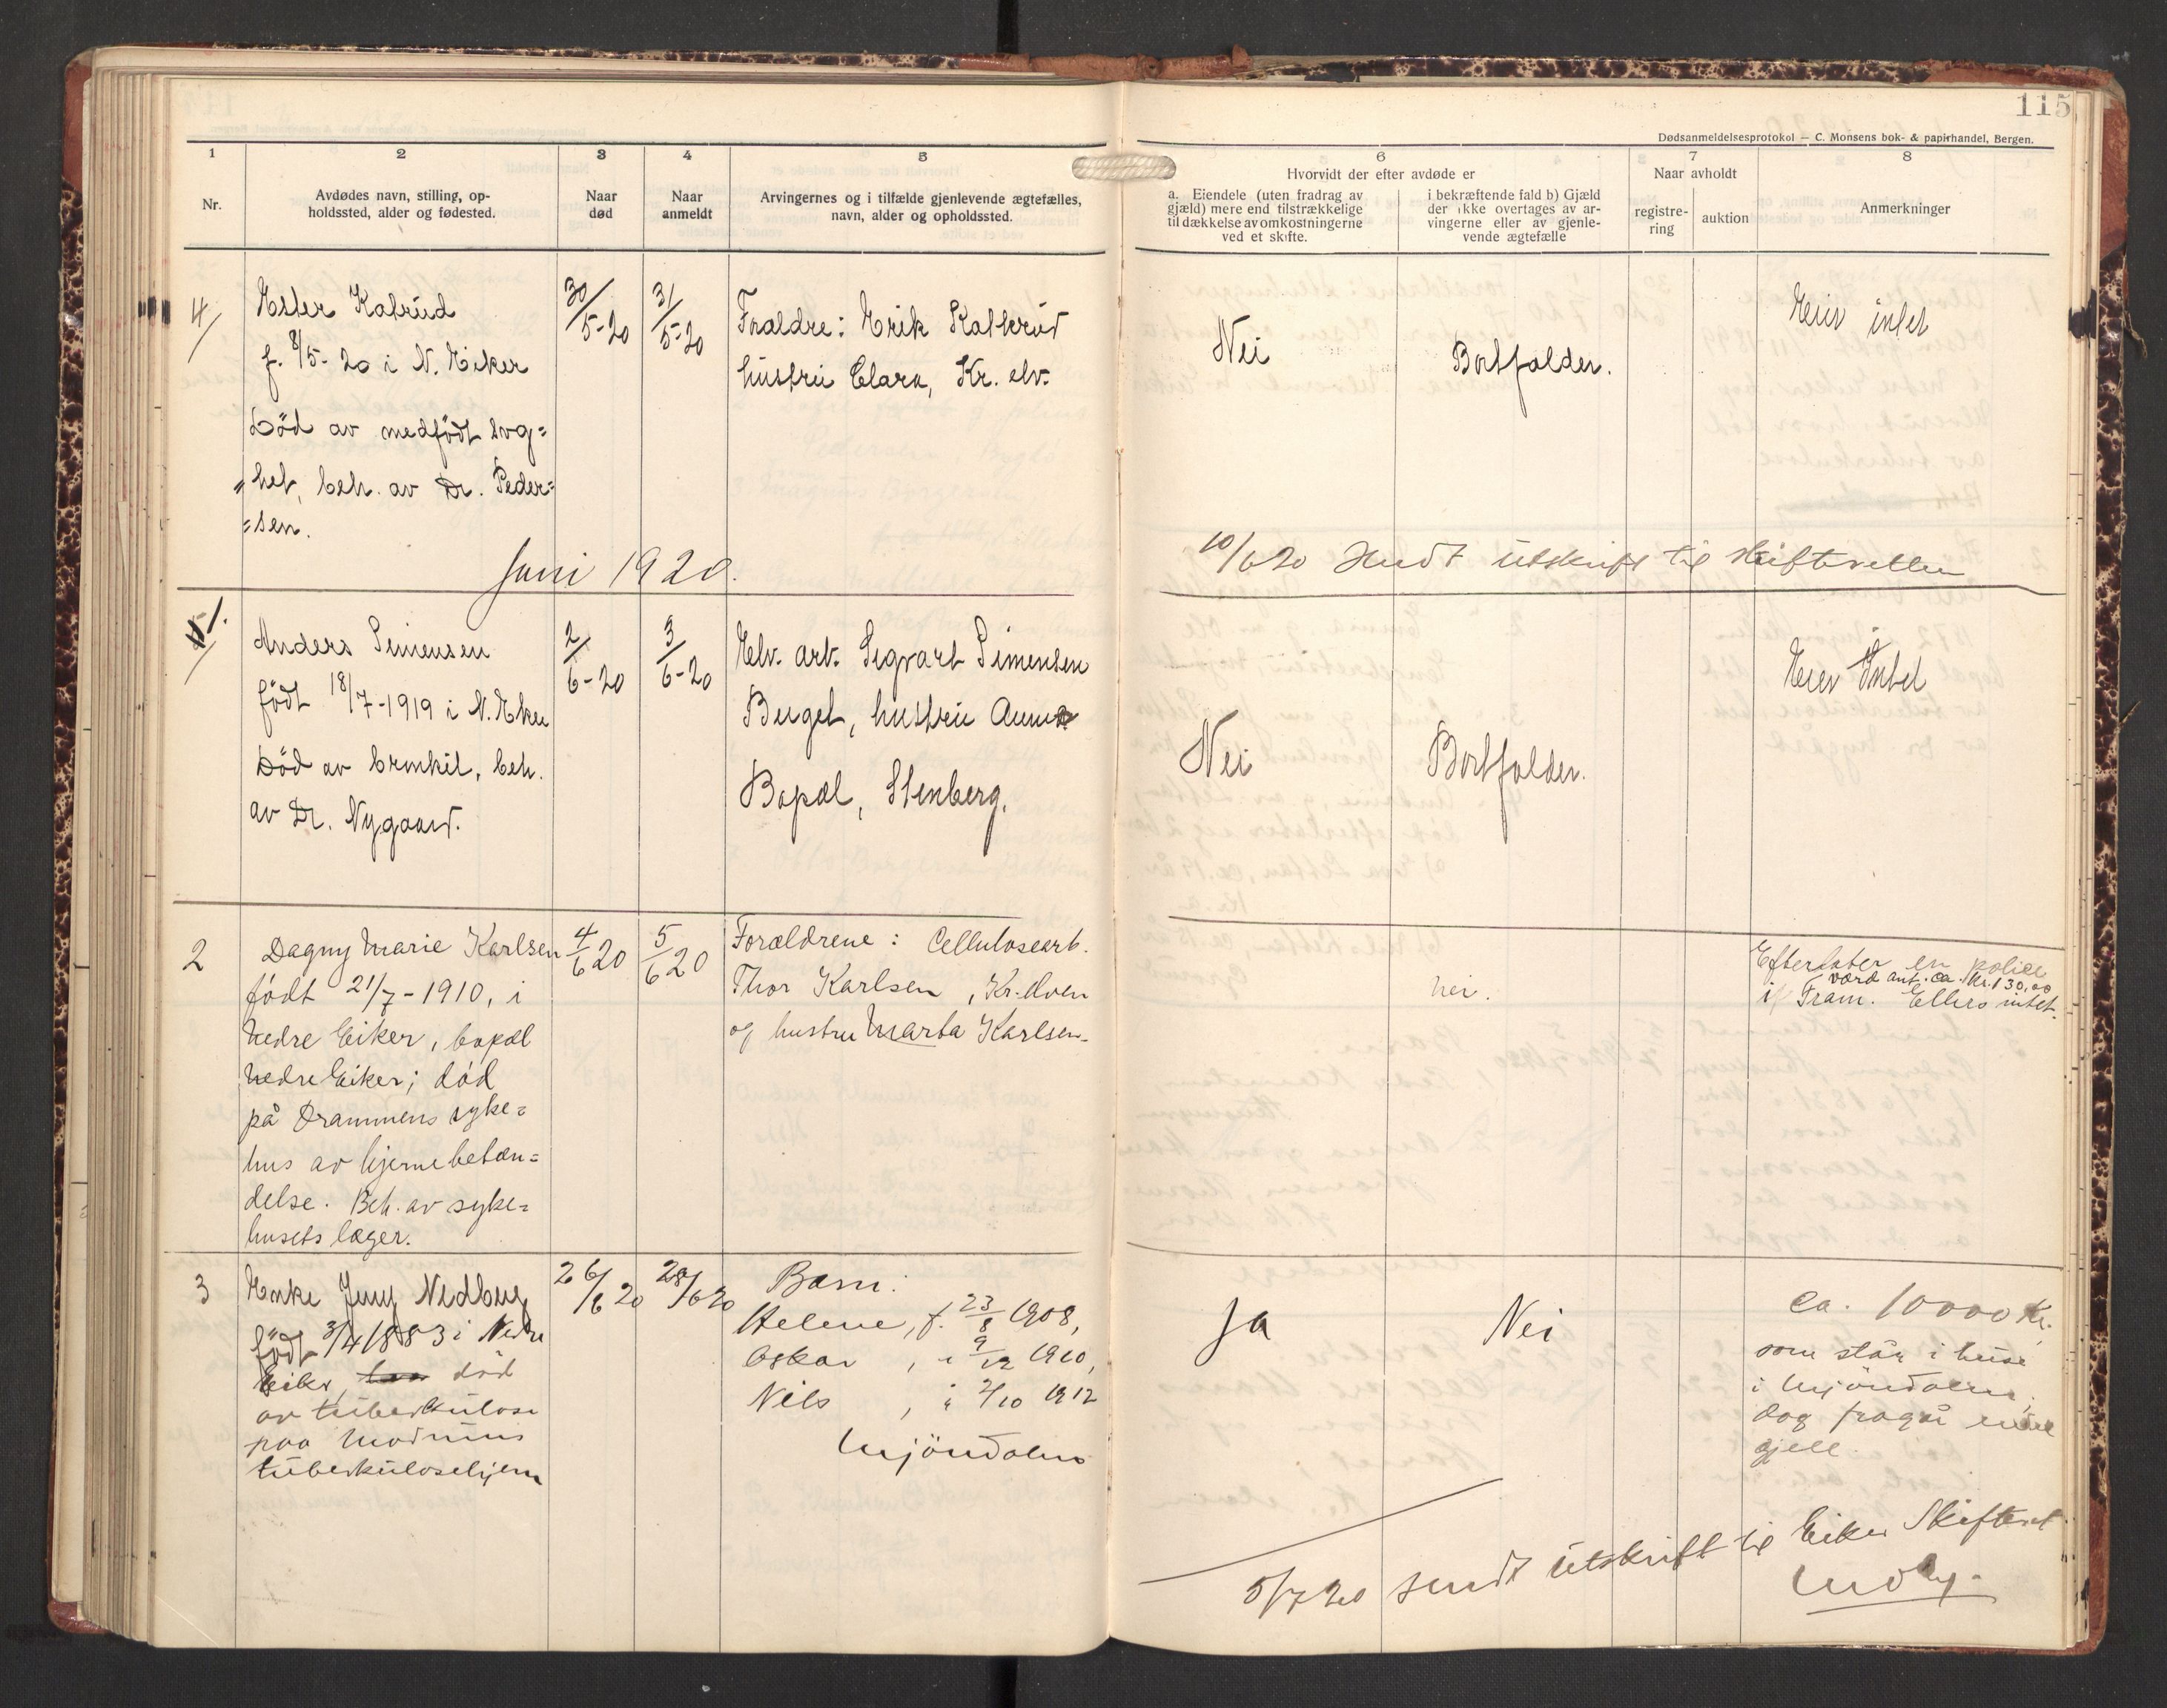 115
Dødsanmeldelsesprotokol — C. Monsens bok- & papirhandel, Bergen.
1
Nr.
2
Avdødes navn, stilling, op-
holdssted, alder og fødested.
3
Naar
død
4
Naar
anmeldt
5
Arvingernes og i tilfælde gjenlevende ægtefælles,
navn, alder og opholdssted.
6
Hvorvidt der efter avdøde er
a. Eiendele (uten fradrag av
gjæld) mere end tilstrækkelige
til dækkelse av omkostningerne
ved et skifte.
i bekræftende fald b) Gjæld
der ikke overtages av ar-
vingerne eller av gjenle-
vende ægtefælle
7
Naar avholdt
registre-
ring
auktion
8
Anmerkninger
4/
Ester Kolsrud
f. 8/5-20 i N. Eiker
Död av medfödt svag=
=het, beh. av Dr. Peder=
=sen.
30/5-20
31/5-20
Fraldre: Erik Kolsrud
hustru Clara, Kr. elv.
Nei
Bortfalder.
Eier intet
Juni 1920.
10/6 20 Sendt utskrift til skifteretten
1.
Anders Simensen
födt 18/7-1919 i N. Eker
Död av bronkit, beh.
av Dr. Nygaard.
2/6-20
3/6-20
Elv. arb. Sigvart Simensen
Berget, hustru Anna
Bopæl, Stenberg.
Nei
Bortfalder.
Eier Intet
2
Dagny Marie Karlsen
født 21/7-1910, i
Nedre Eiker, bopæl
Nedre Eiker; död
på Drammens syke=
hus av hjernebetæn=
delse. Beh. av syke=
husets læger.
4/6 20
5/6 20
Forældrene: Cellulosearb.
Thor Karlsen, Kr.elven
og hustru Marta Karlsen.
nei.
Efterlater en police
værd ant. ca. Kr. 130,00
i Fram. Ellers intet.
3
Enke Jenny Nedberg
födt 3/4 1883 i Nedre
Eiker, död
av tuberkulose
paa Modums
tuberkulosehjem
26/6 20
28/6 20
Barn:
Helene, f. 23/8 1908,
Oskar, " 9/12 1910,
Nils, " 2/10 1912
Mjöndalen
Ja
Nei
ca. 10000 Kr.
som står i huse
i Mjöndalen,
dog fragår endel
gjeld.
5/7 20 sendt utskrift til Eiker Skifteret